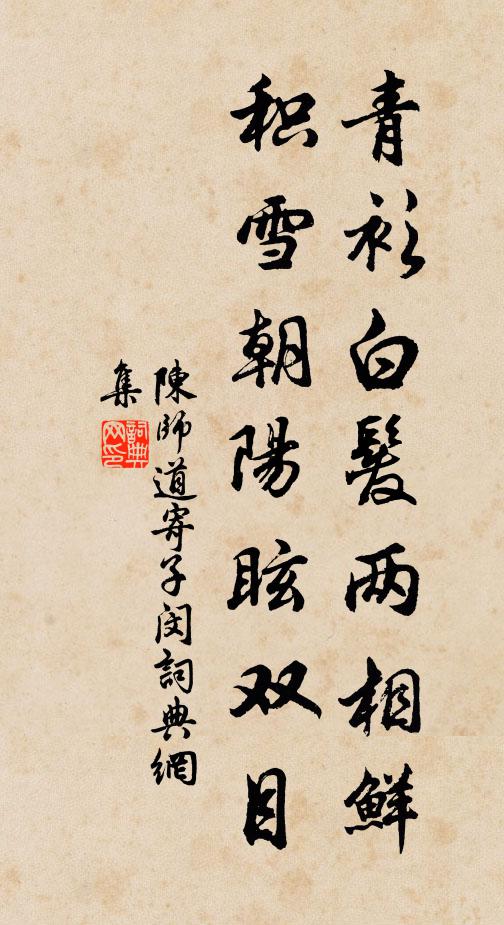 青衫白髮两相鮮
积雪朝陽眩双目
陳師道寄子闵詞典網
集
詞典
网印